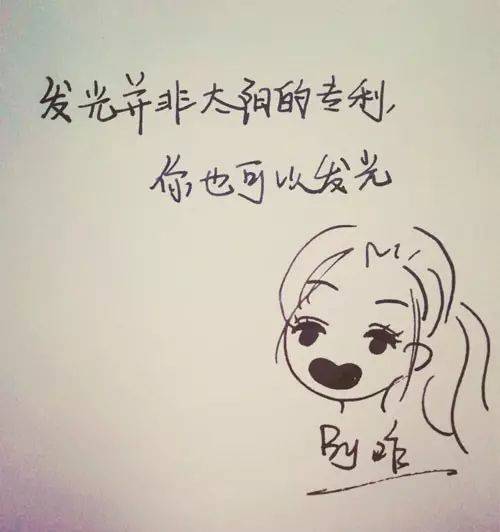 发光并非太阳的专利,
你也可以发光
By咋